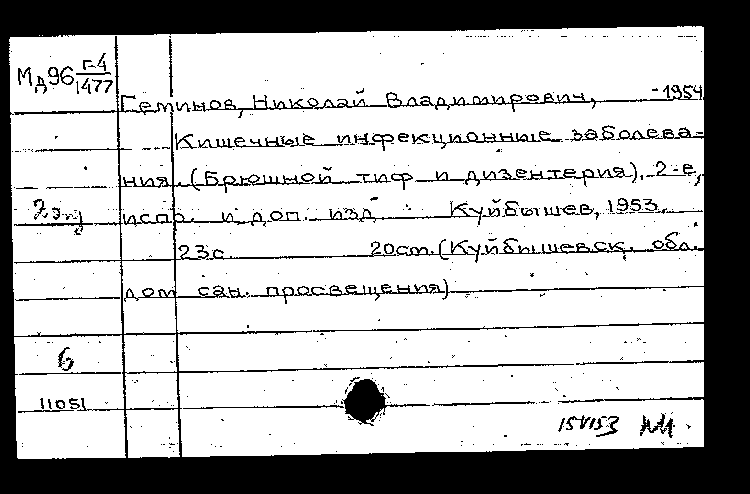 Мд96 Г-4/1477
Геминов, Николай Владимирович, -1954
Кишечные инфекционные заболева=
ния. (Брюшной тиф и дизентерия). 2-е,
2 экз испр. и доп. изд. Куйбышев, 1953.
23с. 20см. (Куйбышевск. обл.
дом сан. просвещения)
6
11051